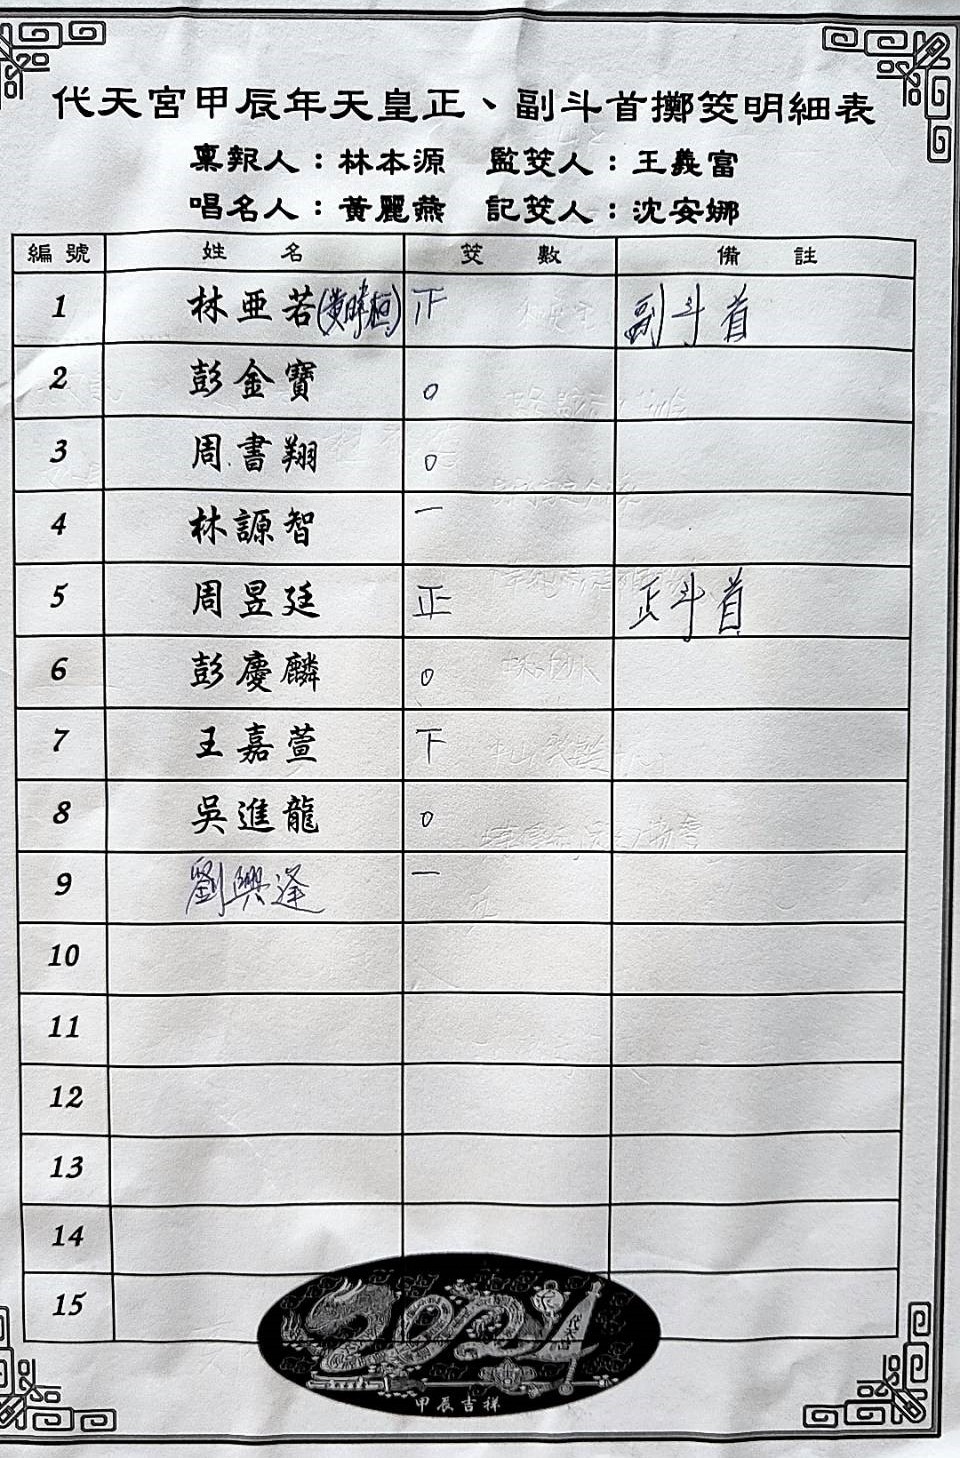 代天宮甲辰年天皇正、副斗首擲筊明細表
稟報人：林本源 監筊人：王義富
唱名人：黃麗燕 記筊人：沈安娜
編號 姓名 筊數 備註
1 林亞若 副斗首
2 彭金寶 0
3 周書翔 0
4 林謜智 一
5 周昱廷 正 正斗首
6 彭慶麟 0
7 王嘉萱 下
8 吳進龍 0
9 劉興逢 一
10
11
12
13
14
15
2024
甲辰吉祥